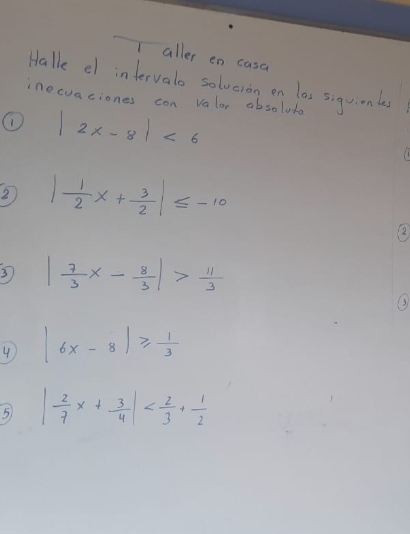 Taller en casa
Halle el intervalo solución en las siguientes
inecuaciones con valor absoluto
① |2x - 8| < 6
② |1/2 x + 3/2| ≤ -10
③ |7/3 x - 8/3| > 11/3
④ |6x - 8| ≥ 1/3
⑤ |2/7 x + 3/4| < 2/3 + 1/2
②
③